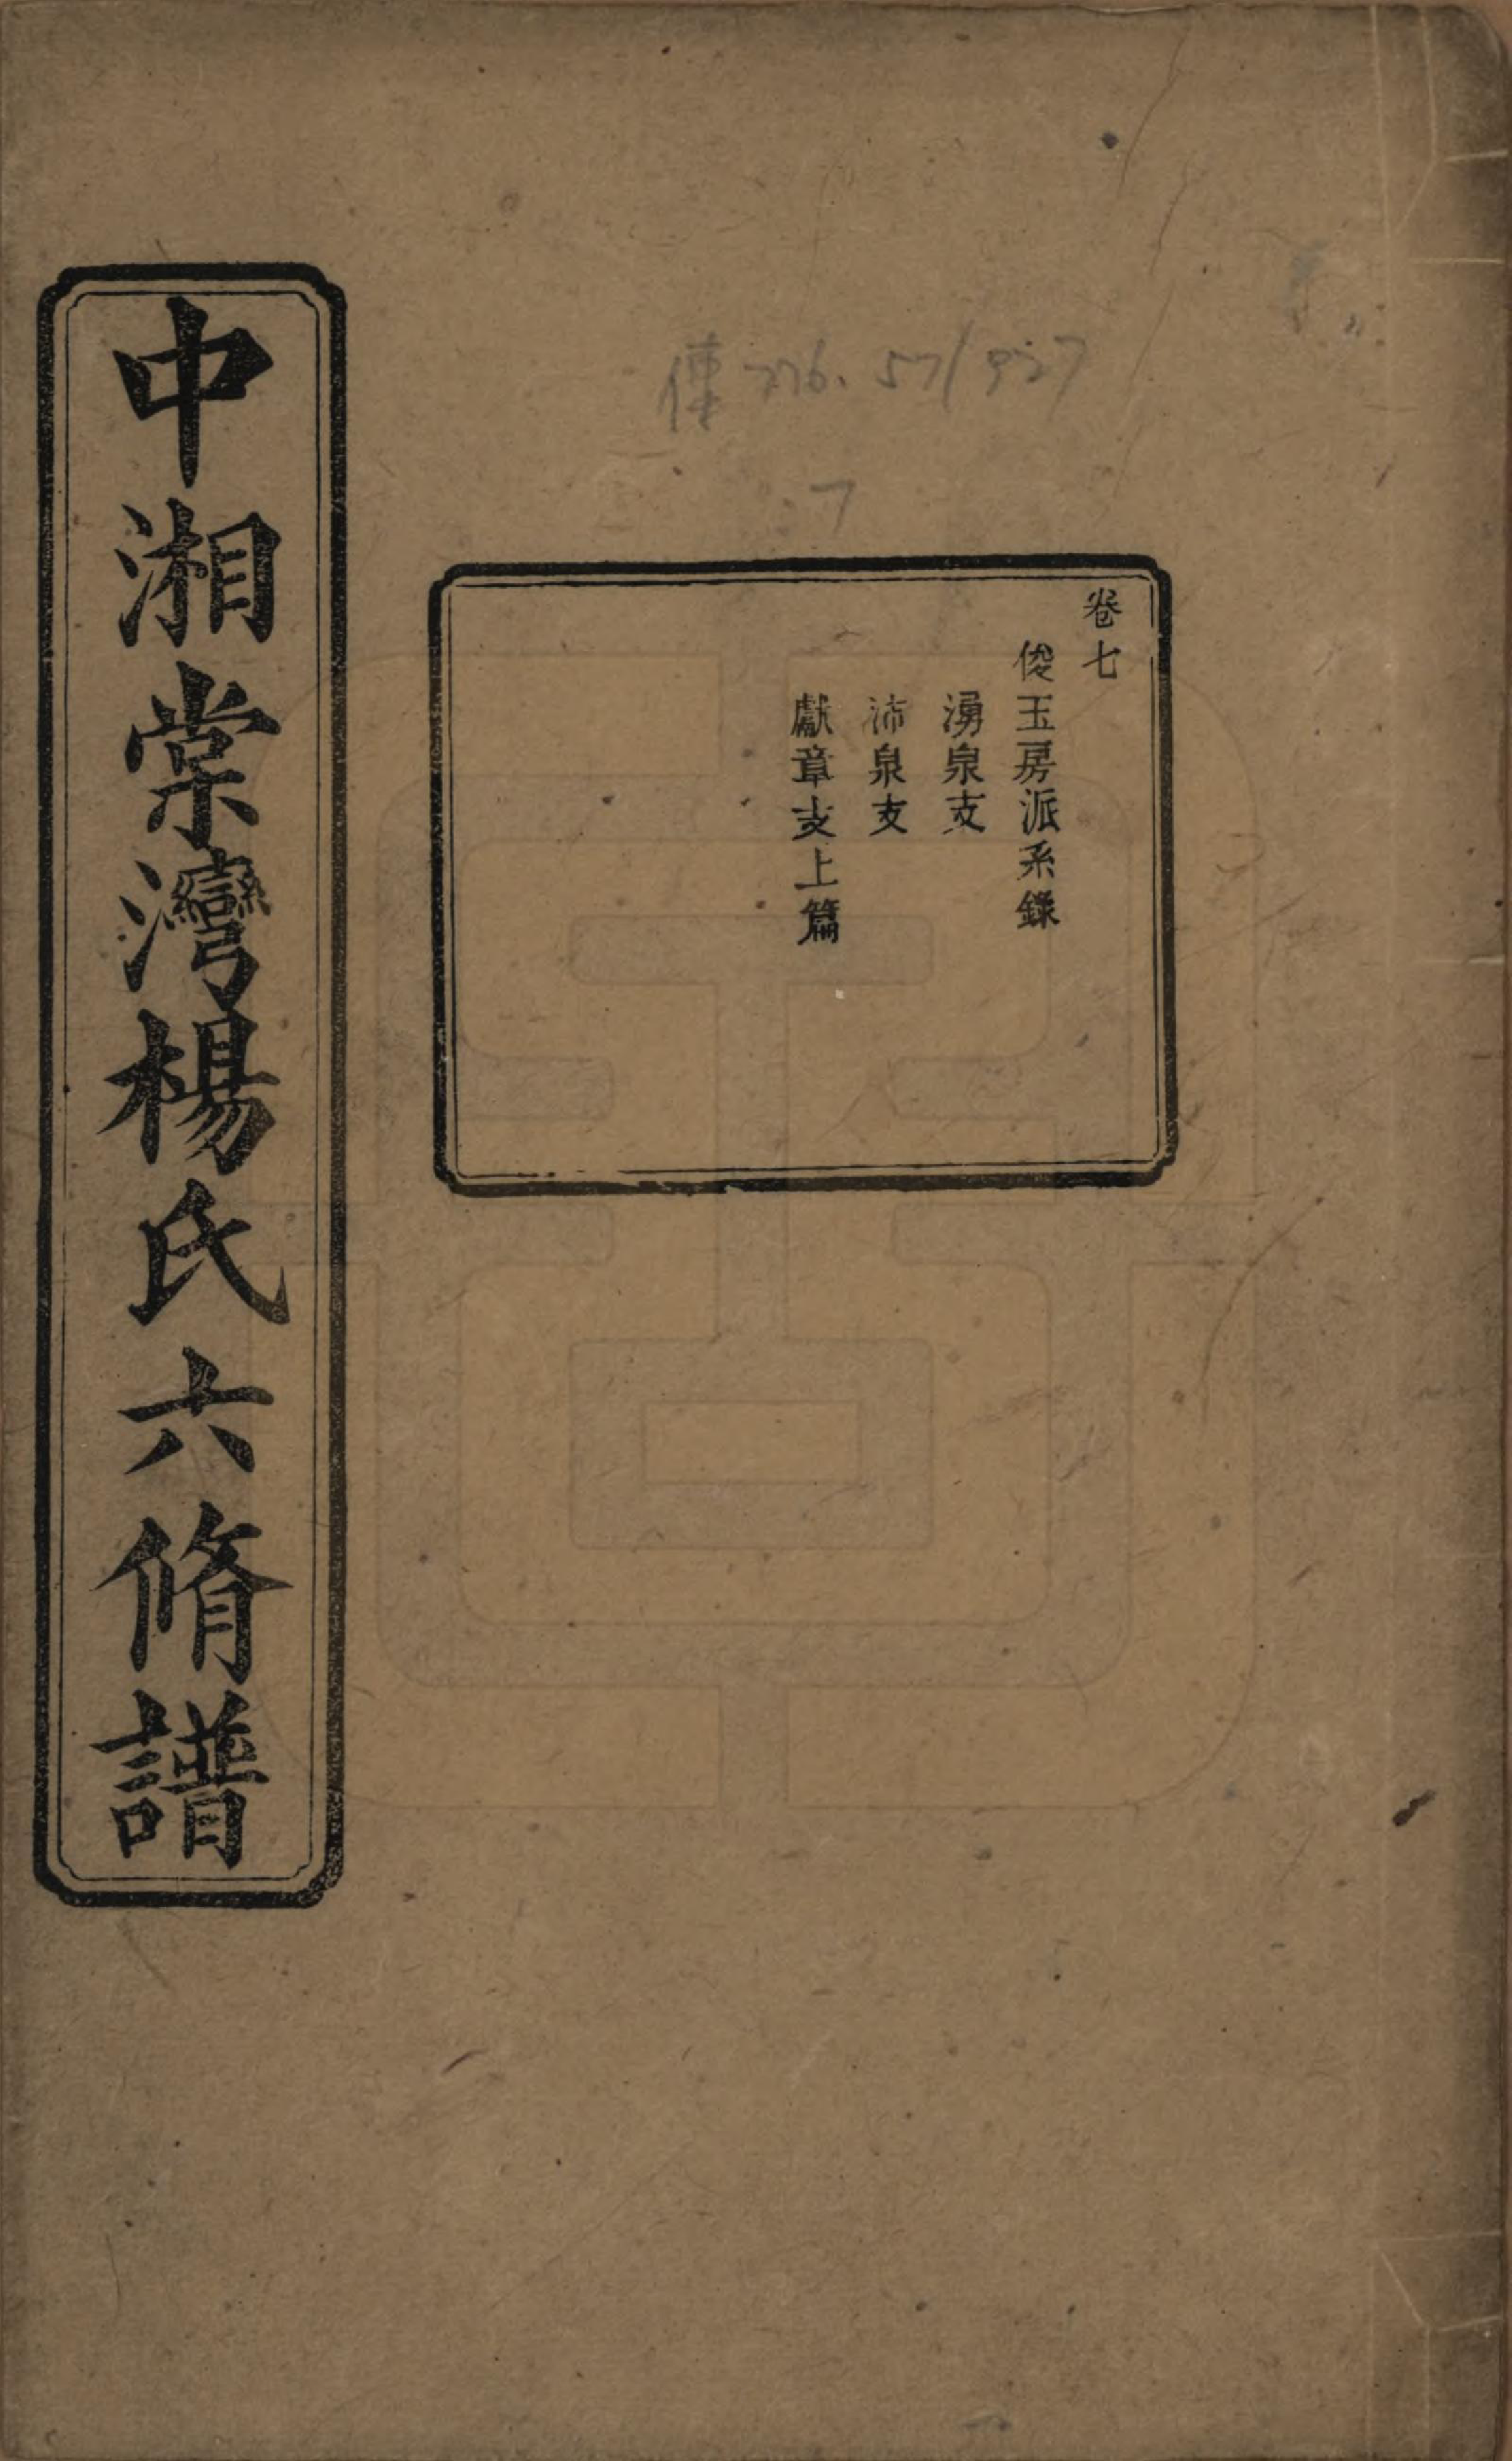 中湘棠灣楊氏六脩譜
卷七
俊玉房派系錄
湧泉支
沛泉支
獻章支上篇
7